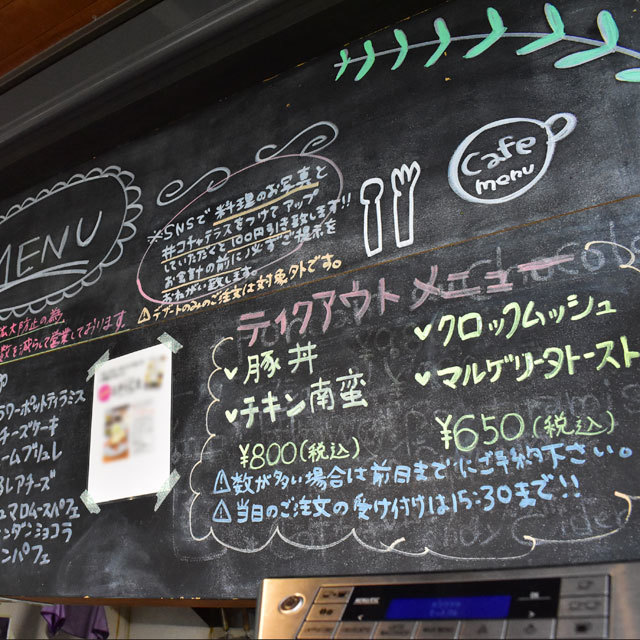 MENU
※SNSで料理のお写真と
#コチャテラスをつけてアップ
していただくと100円引き致します!!
お会計の前に必ずご提示を
おねがい致します。
⚠デザートのみのご注文は対象外です。
Cafe
menu
数を減らして営業しております。
テイクアウトメニュー
豚丼
チキン南蛮
¥800(税込)
クロックムッシュ
マルゲリータトースト
¥650(税込)
⚠数が多い場合は前日までにご予約下さい。
⚠当日のご注文の受け付けは15:30まで!!
ワーポットティラミス
チーズケーキ
ームブリュレ
レアチーズ
マロムースパフェ
ンダンショコラ
ンパフェ